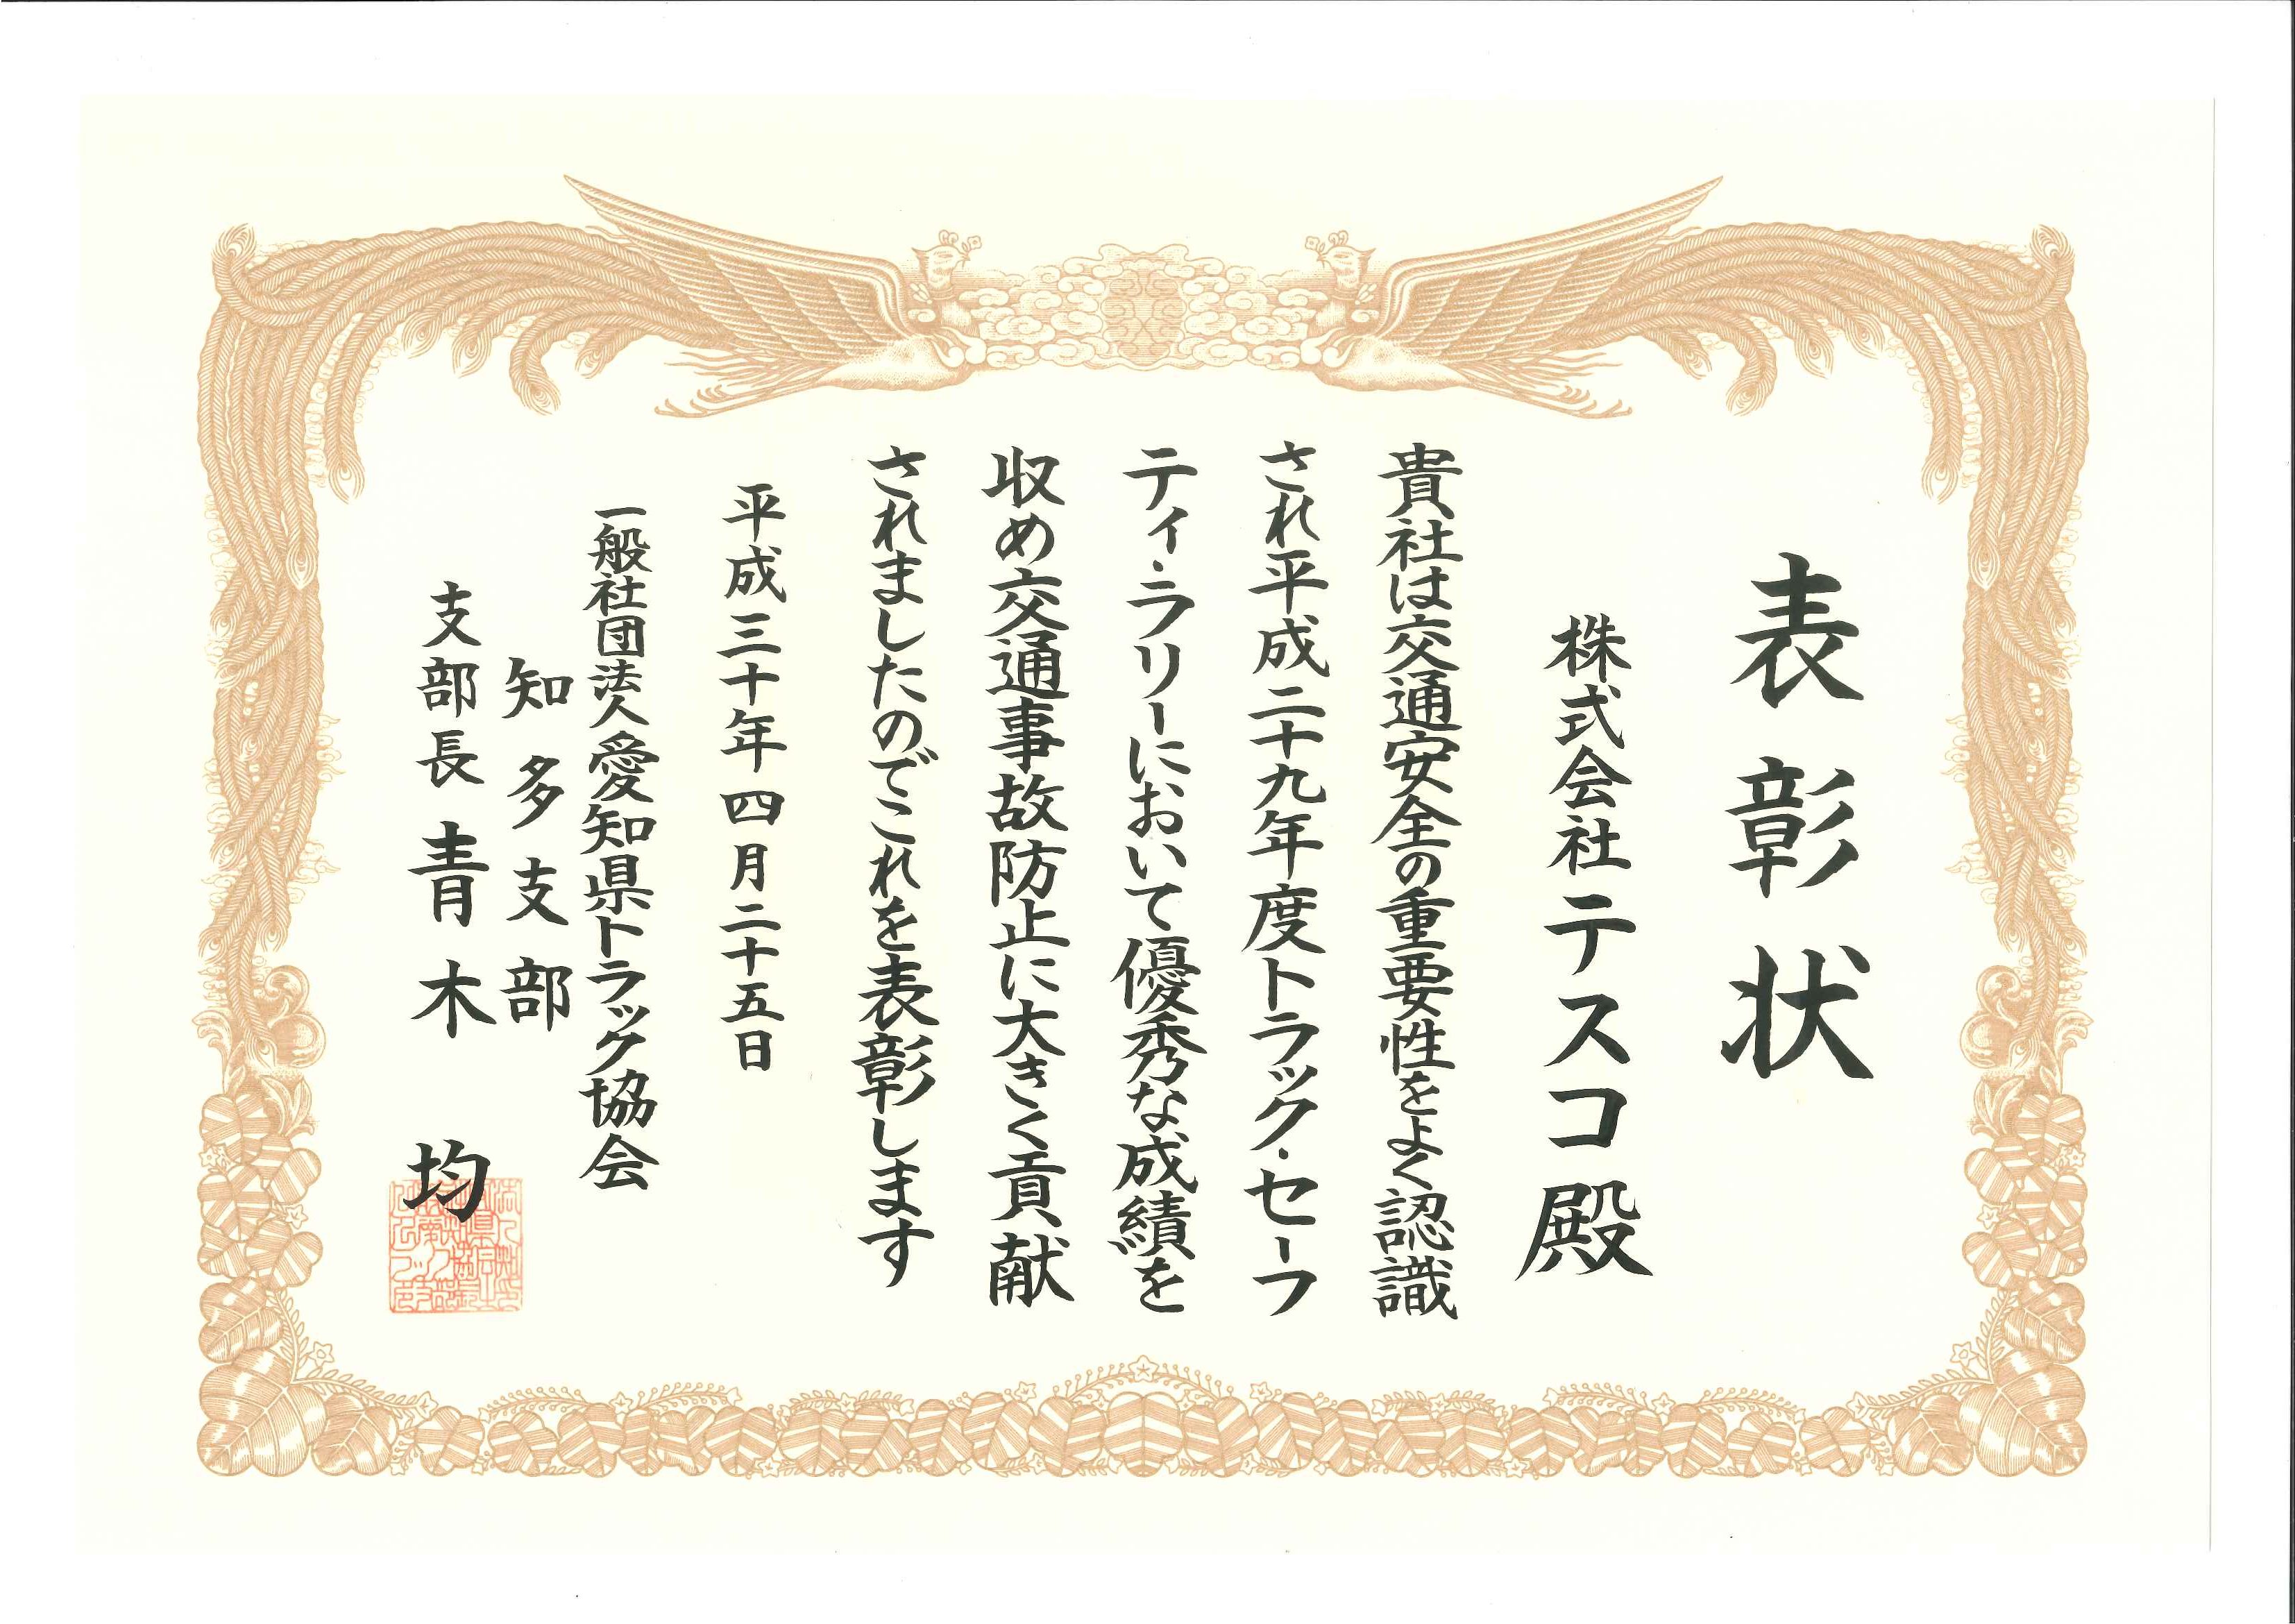 表彰状
株式会社テスコ殿
貴社は交通安全の重要性をよく認識
され平成二十九年度トラック・セーフ
ティ・ラリーにおいて優秀な成績を
収め交通事故防止に大きく貢献
されましたのでこれを表彰します
平成三十年四月二十五日
一般社団法人愛知県トラック協会
知多支部
支部長青木均